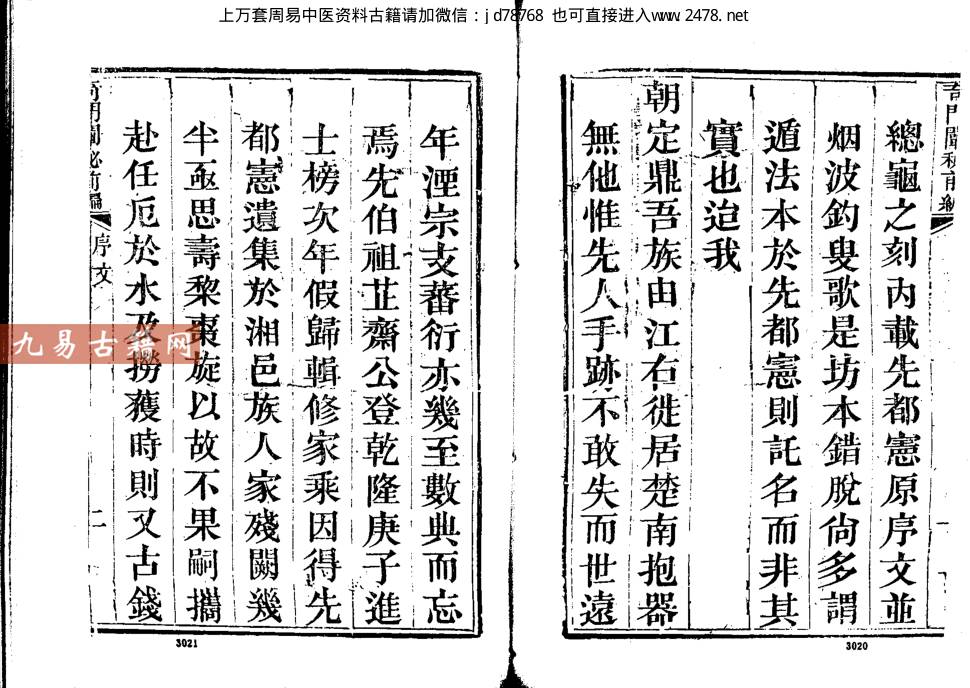 上万套周易中医资料古籍请加微信：jd78768 也可直接进入www.2478.net
總龜之刻內載先都憲原序文並
烟波釣叟歌是坊本錯脫尙多謂
遁法本於先都憲則託名而非其
實也迨我
朝定鼎吾族由江右徙居楚南抱器
無他惟先人手跡不敢失而世遠
3020
年湮宗支蕃衍亦幾至數典而忘
焉先伯祖芷齋公登乾隆庚子進
士榜次年假歸輯修家乘因得先
都憲遺集於湘邑族人家殘闕幾
半亟思壽黎棗旋以故不果嗣攜
赴任厄於水及撈獲時則又古錢
奇門闡秘前編
序文
二
3021
九易古籍网